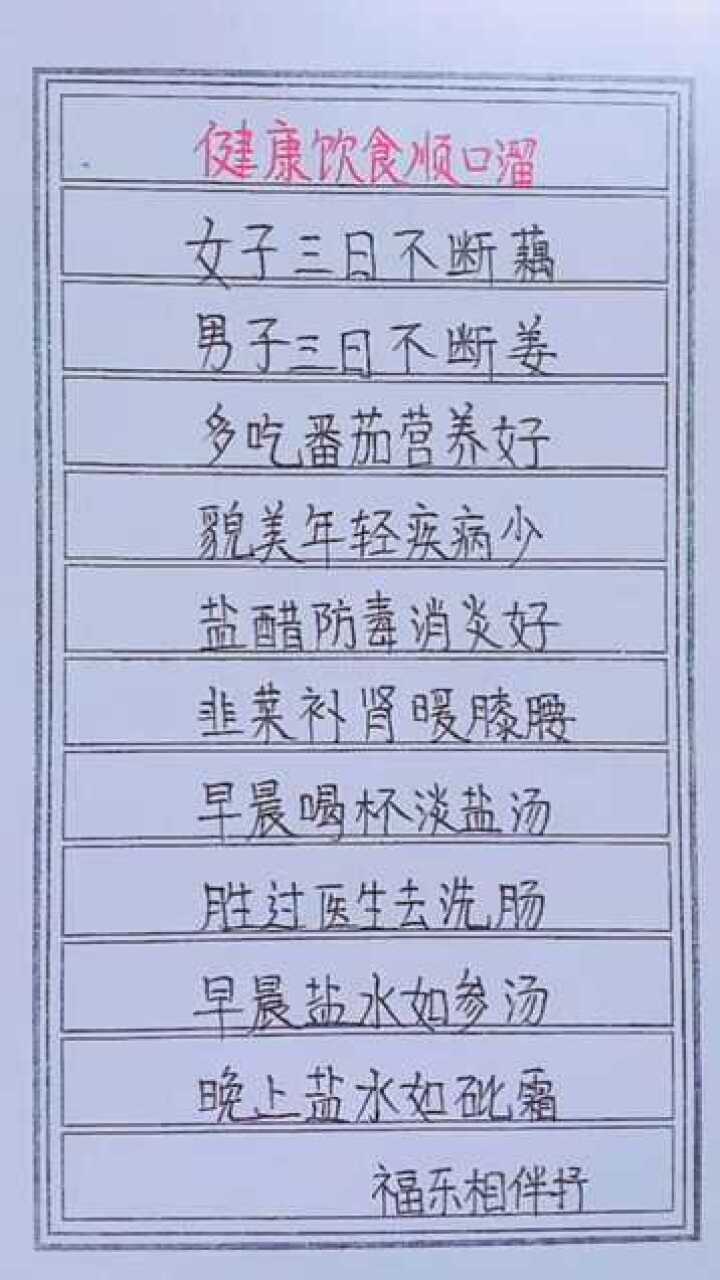 健康饮食顺口溜
女子三日不断藕
男子三日不断姜
多吃番茄营养好
貌美年轻疾病少
盐醋防毒消炎好
韭菜补肾暖膝腰
早晨喝杯淡盐汤
胜过医生去洗肠
早晨盐水如参汤
晚上盐水如砒霜
福乐相伴抒